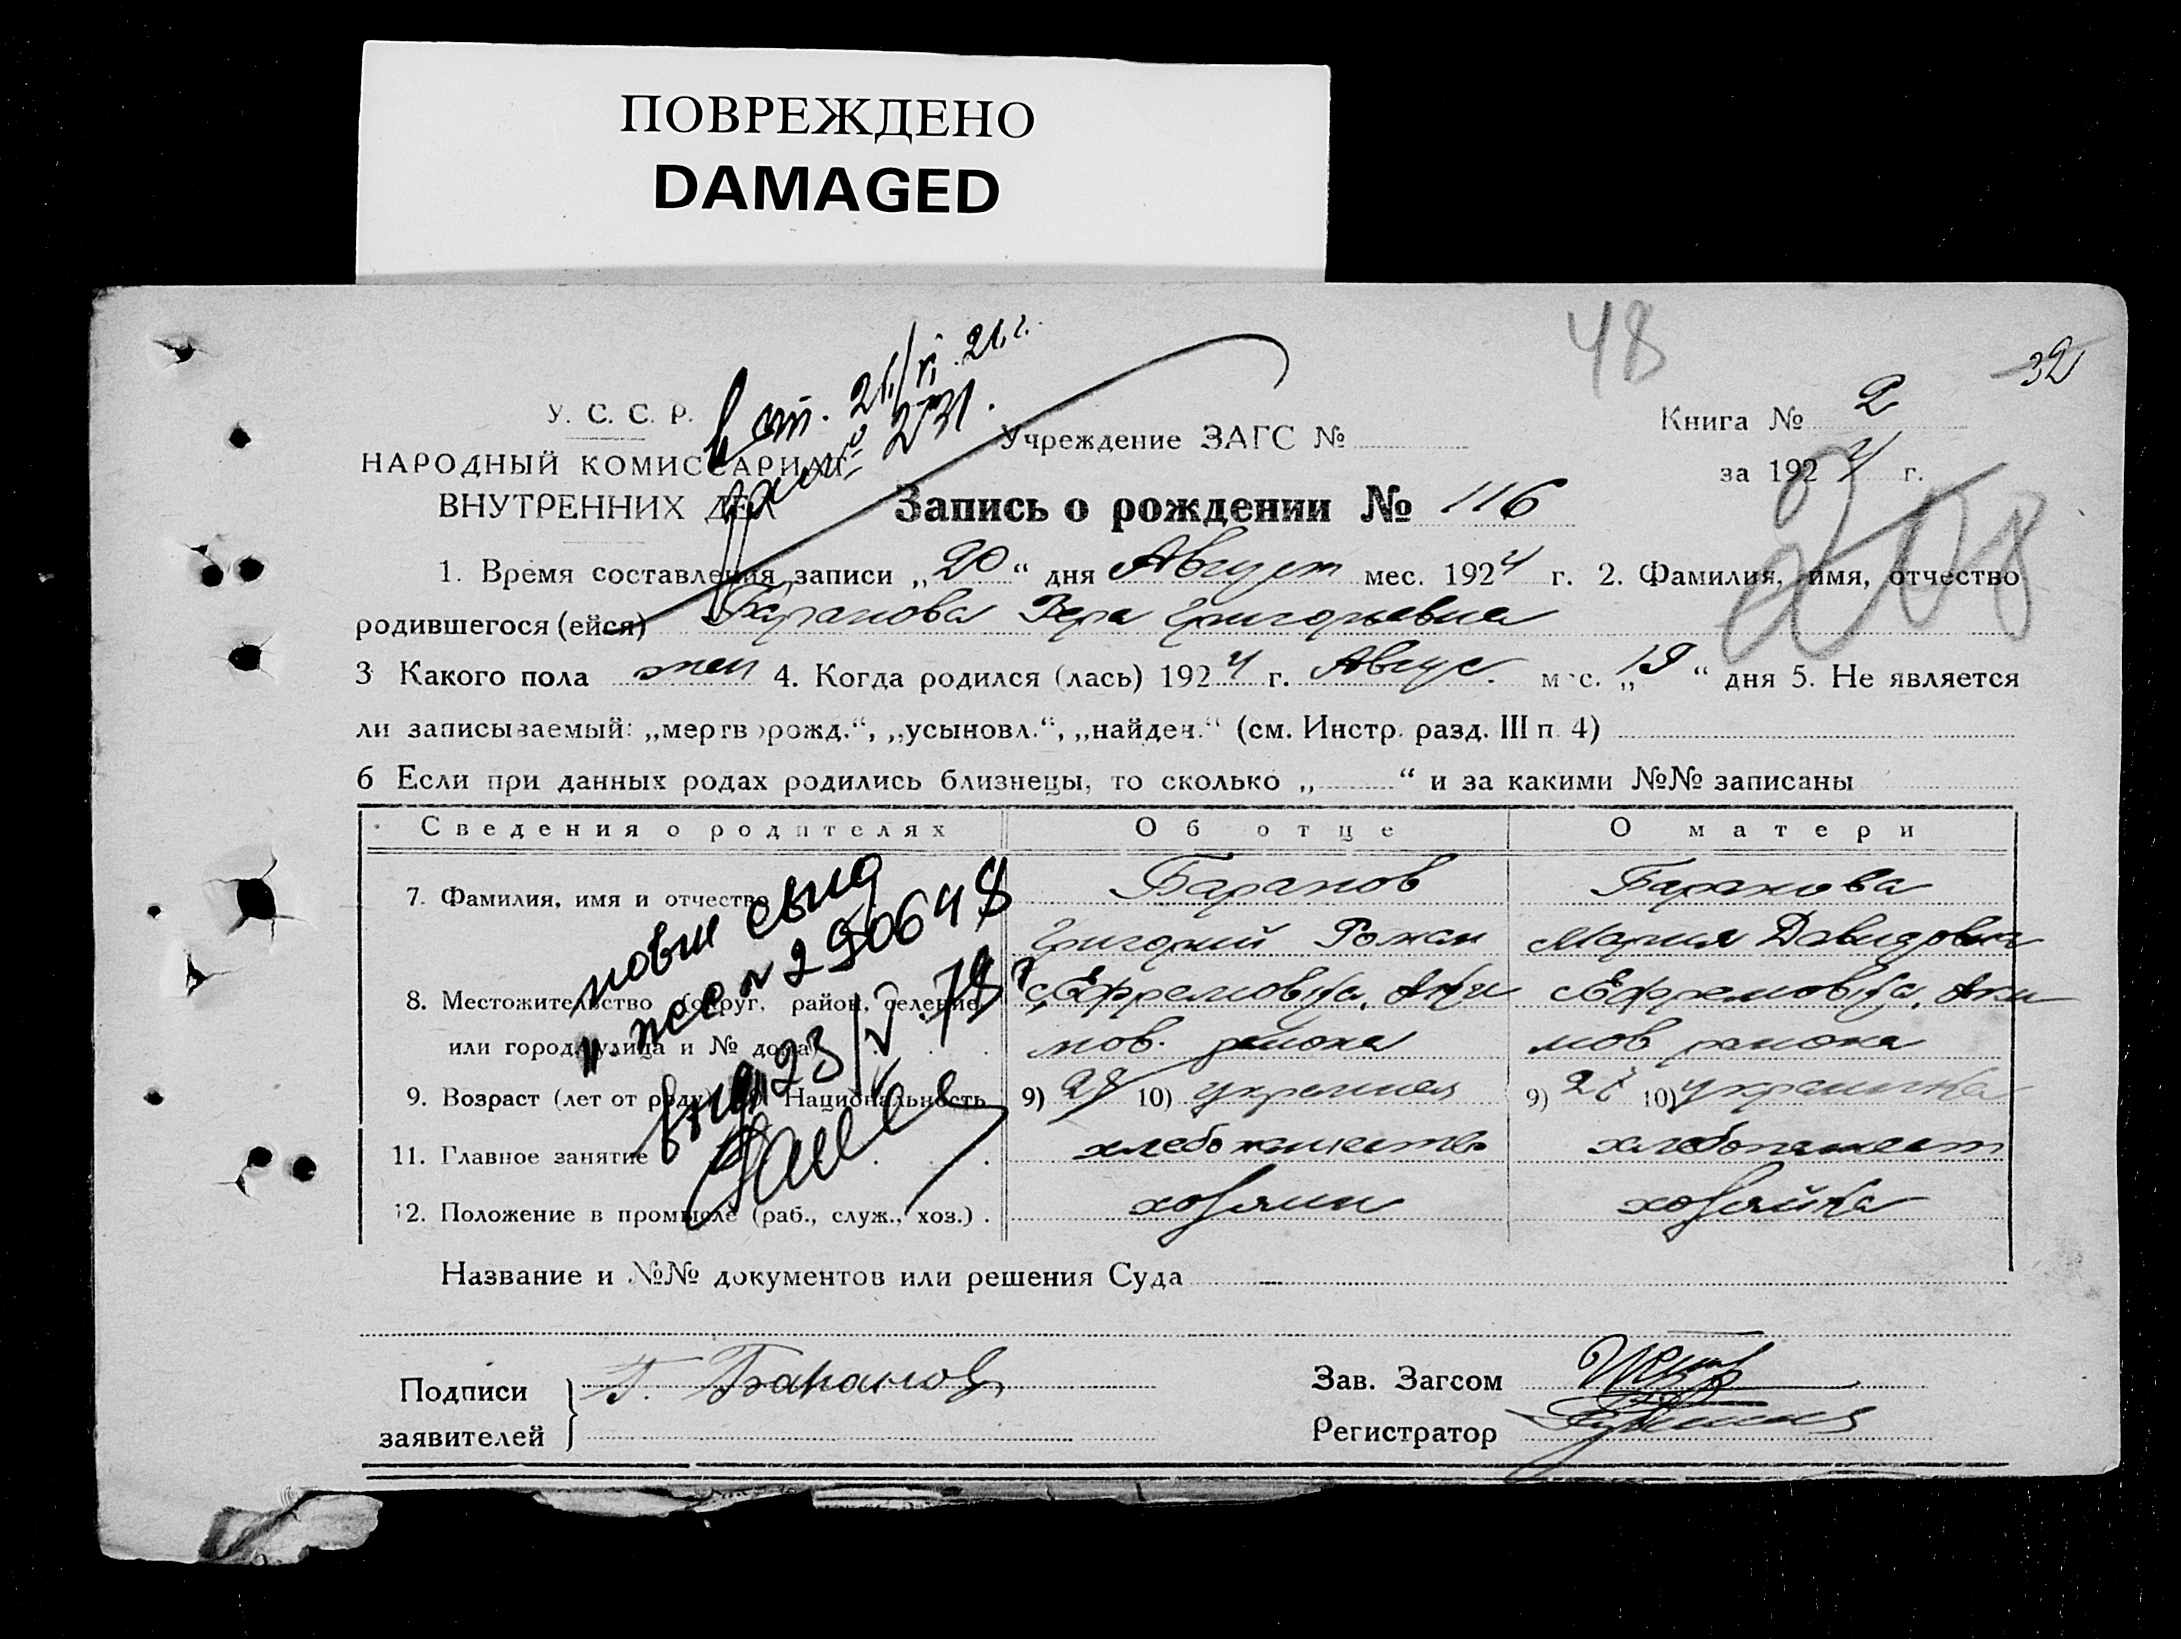 ПОВРЕЖДЕНО
DAMAGED
48
32
У. С. С. Р.
НАРОДНЫЙ КОМИССАРИАТ
ВНУТРЕННИХ ДЕЛ
Учреждение ЗАГС №
Книга № 2
за 1924 г.
Запись о рождении № 116
1. Время составления записи „20“ дня Август мес. 1924 г. 2. Фамилия, имя, отчество
родившегося (ейся) Баранова Вера Григорьевна
3 Какого пола жен 4. Когда родился (лась) 1924 г. Авгус. мес. „19“ дня 5. Не является
ли записываемый: „мертворожд.“, „усыновл.“, „найден.“ (см. Инстр. разд. III п. 4)
6 Если при данных родах родились близнецы, то сколько „ “ и за какими №№ записаны
Сведения о родителях Об отце О матери
7. Фамилия, имя и отчество Баранов Баранова
Григорий Роман Мария Давидовна
8. Местожительство (округ, район, селение с. Ефремовка, Аки с. Ефремовка, Аки
или город, улица и № дома) мов. района мов района
9. Возраст (лет от роду) 10. Национальность 9) 28 10) украинец 9) 10) украинка
11. Главное занятие хлебопашество хлебопашест
12. Положение в промысле (раб., служ., хоз.) хозяин хозяйка
новое свид
№ 290648
23/V.78 г
Название и №№ документов или решения Суда —
Подписи
заявителей
Г. Баранов
Зав. Загсом
Регистратор